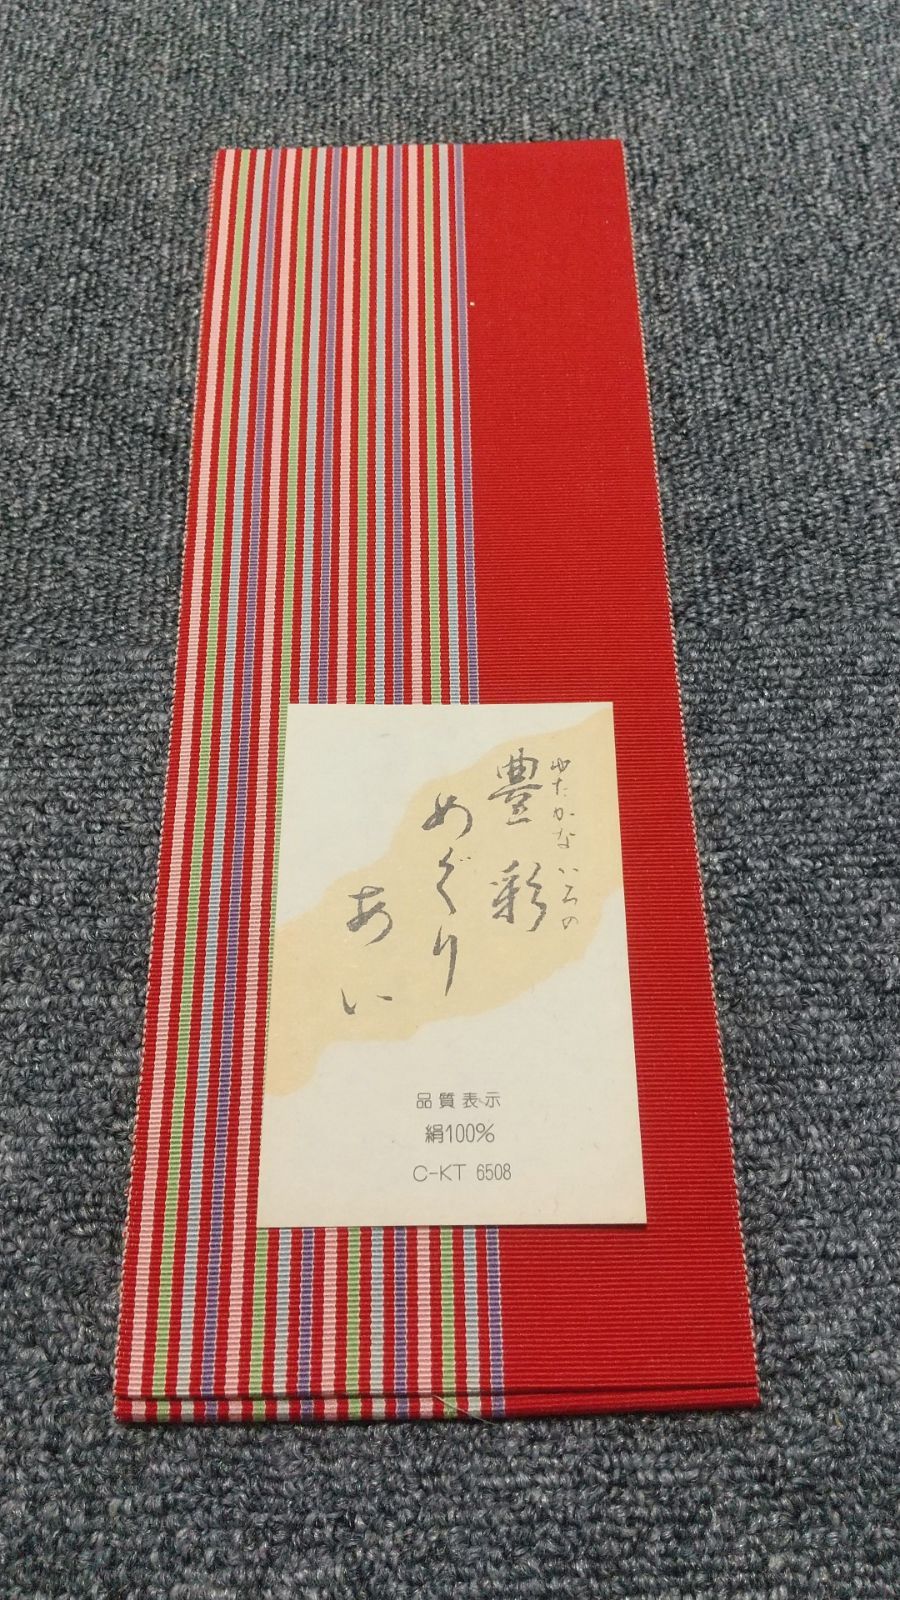 ゆたかないろの
豊彩
めぐり
あい
品質表示
絹100%
C-KT 6508